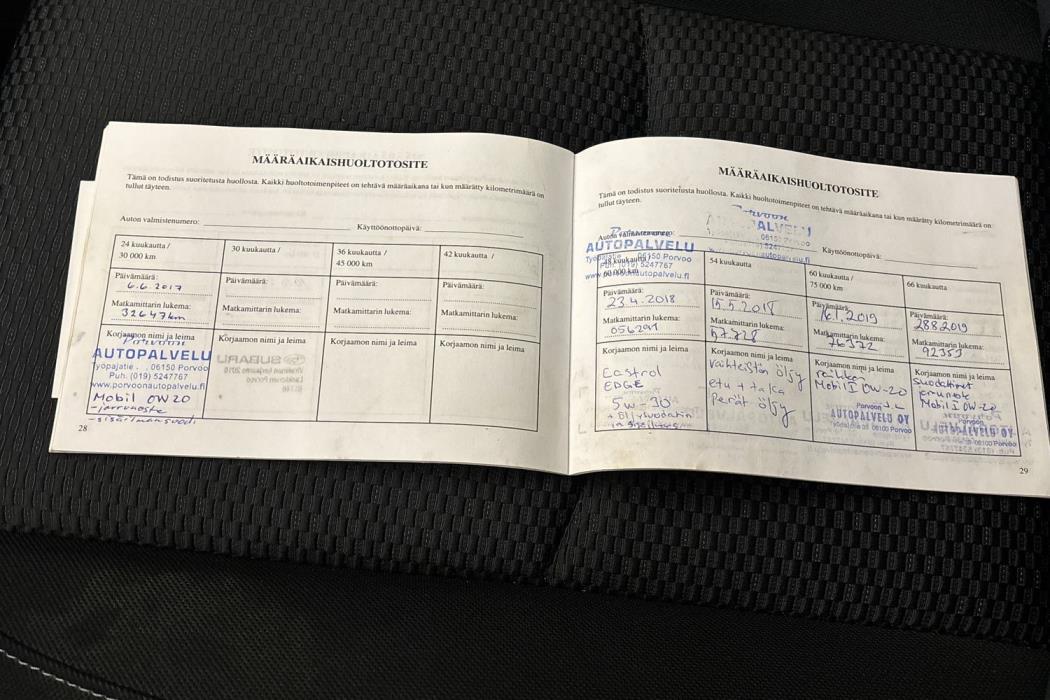 MÄÄRÄAIKAISHUOLTOTOSITE
Tämä on todistus suoritetusta huollosta. Kaikki huoltotoimenpiteet on tehtävä määräaikana tai kun määrätty kilometrimäärä on
tullut täyteen.
Auton valmistenumero: Käyttöönottopäivä:
24 kuukautta /
30 000 km
30 kuukautta /
36 kuukautta /
45 000 km
42 kuukautta /
Päivämäärä:
6.6.2017
Päivämäärä:
Päivämäärä:
Päivämäärä:
Matkamittarin lukema:
32647km
Matkamittarin lukema:
Matkamittarin lukema:
Matkamittarin lukema:
Korjaamon nimi ja leima
AUTOPALVELU
Työpajatie 06150 Porvoo
Puh. (019) 5247767
www.porvoonautopalvelu.fi
Mobil 0W20
- jarruneste
Korjaamon nimi ja leima
Korjaamon nimi ja leima
Korjaamon nimi ja leima
28
MÄÄRÄAIKAISHUOLTOTOSITE
Tämä on todistus suoritetusta huollosta. Kaikki huoltotoimenpiteet on tehtävä määräaikana tai kun määrätty kilometrimäärä on
tullut täyteen.
Porvoon
Auton valmistenumero: Käyttöönottopäivä:
AUTOPALVELU
06150 Porvoo
Puh. (019) 5247767
48 kuukautta
54 kuukautta
60 kuukautta /
75 000 km
66 kuukautta
Päivämäärä:
23.4.2018
Päivämäärä:
15.5.2018
Päivämäärä:
16.1.2019
Päivämäärä:
28.8.2019
Matkamittarin lukema:
056291
Matkamittarin lukema:
57.728
Matkamittarin lukema:
76372
Matkamittarin lukema:
92353
Korjaamon nimi ja leima
Castrol
EDGE
5w-30
Korjaamon nimi ja leima
Vaihteistön öljy
etu + taka
Perät öljy
Korjaamon nimi ja leima
Mobil 1 0W-20
Porvoon
AUTOPALVELU OY
06100 Porvoo
Korjaamon nimi ja leima
Mobil 1 0W-20
Porvoon
AUTOPALVELU OY
06100 Porvoo
29